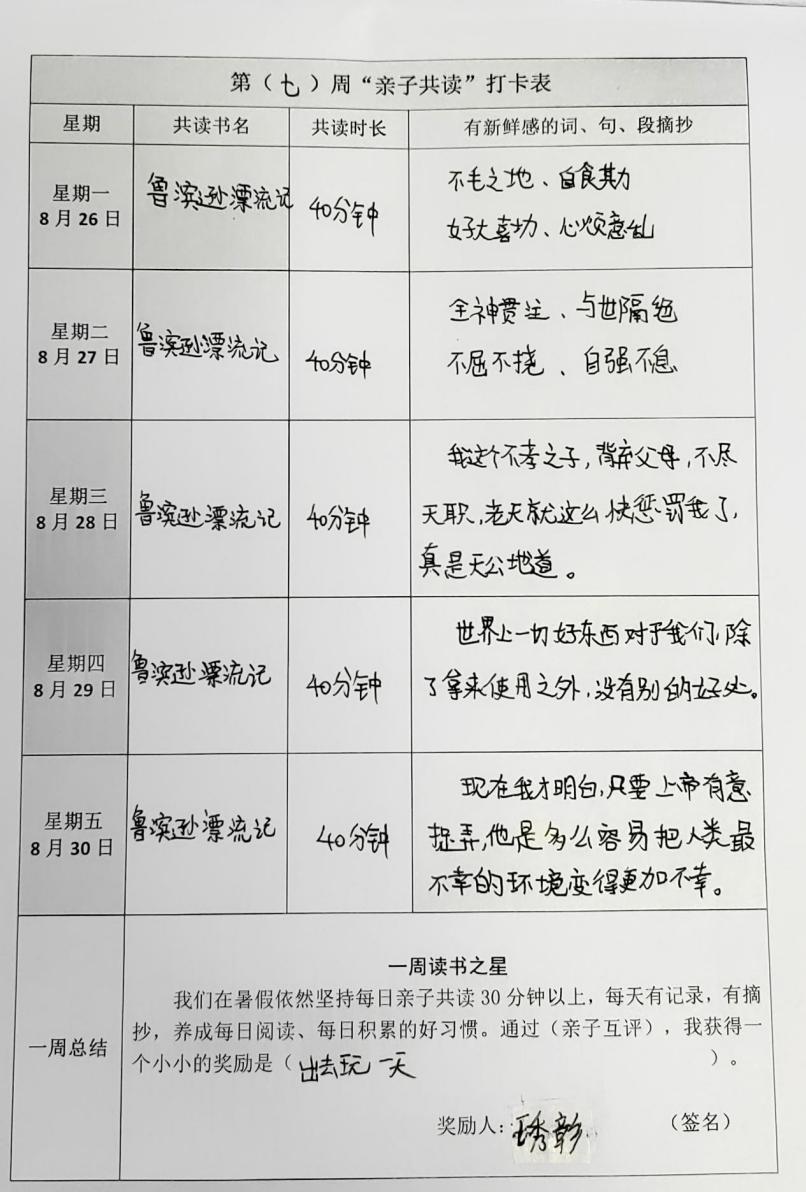 第（七）周“亲子共读”打卡表
星期 共读书名 共读时长 有新鲜感的词、句、段摘抄
星期一
8月26日
鲁滨逊漂流记
40分钟
不毛之地、自食其力
好大喜功、心烦意乱
星期二
8月27日
鲁滨逊漂流记
40分钟
全神贯注、与世隔绝
不屈不挠、自强不息
星期三
8月28日
鲁滨逊漂流记
40分钟
我这个不孝之子,背弃父母,不尽
天职,老天就这么快惩罚我了,
真是天公地道。
星期四
8月29日
鲁滨逊漂流记
40分钟
世界上一切好东西对于我们,除
了拿来使用之外,没有别的好处。
星期五
8月30日
鲁滨逊漂流记
40分钟
现在我才明白,只要上帝有意
捉弄,他是多么容易把人类最
不幸的环境变得更加不幸。
一周总结
一周读书之星
我们在暑假依然坚持每日亲子共读30分钟以上，每天有记录，有摘
抄，养成每日阅读、每日积累的好习惯。通过（亲子互评），我获得一
个小小的奖励是（出去玩一天）。
奖励人：琇彰（签名）